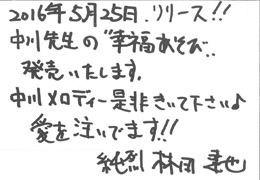 2016年5月25日.リリース!!
中川先生の"幸福あそび"..
発売いたします.
中川メロディー是非きいて下さい♪
愛を注いでます!!
純烈 林田達也